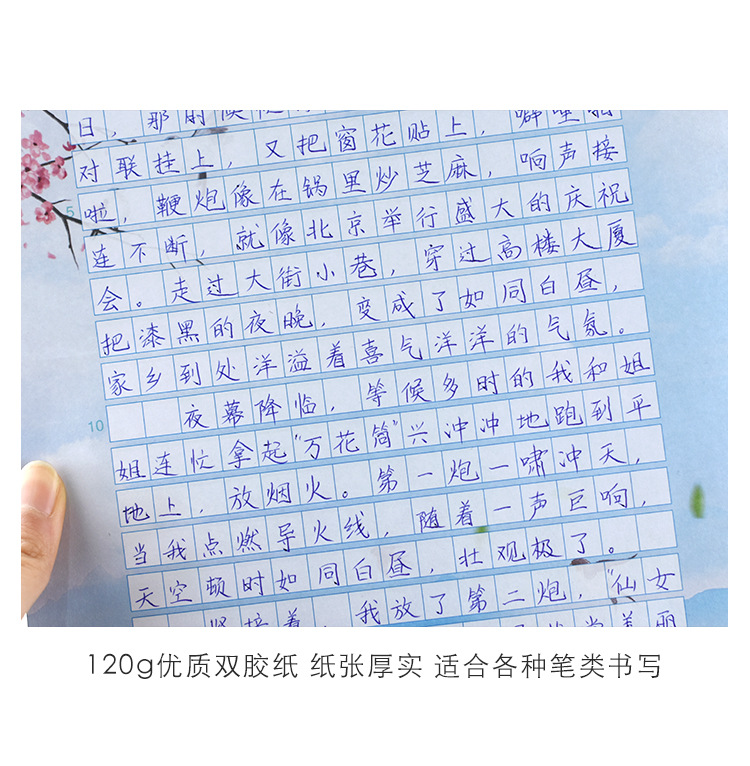 日，那时候
对联挂上，又把窗花贴上，噼哩啪
5
啦，鞭炮像在锅里炒芝麻，响声接
连不断，就像北京举行盛大的庆祝
会。走过大街小巷，穿过高楼大厦
把漆黑的夜晚，变成了如同白昼，
家乡到处洋溢着喜气洋洋的气氛。
10
夜幕降临，等候多时的我和姐
姐连忙拿起“万花筒”兴冲冲地跑到平
地上，放烟火。第一炮一啸冲天，
当我点燃导火线，随着一声巨响，
天空顿时如同白昼，壮观极了。
紧接着，我放了第二炮，“仙女
美丽
120g优质双胶纸 纸张厚实 适合各种笔类书写